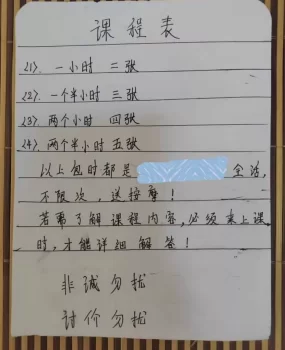 课程表
<1>. 一小时 二张
<2>. 一个半小时 三张
<3>. 两个小时 四张
<4>. 两个半小时 五张
以上包时都是 全活,
不限次,送按摩!
若需了解课程内容,必须来上课
时,才能详细解答!
非诚勿扰
讨价勿扰